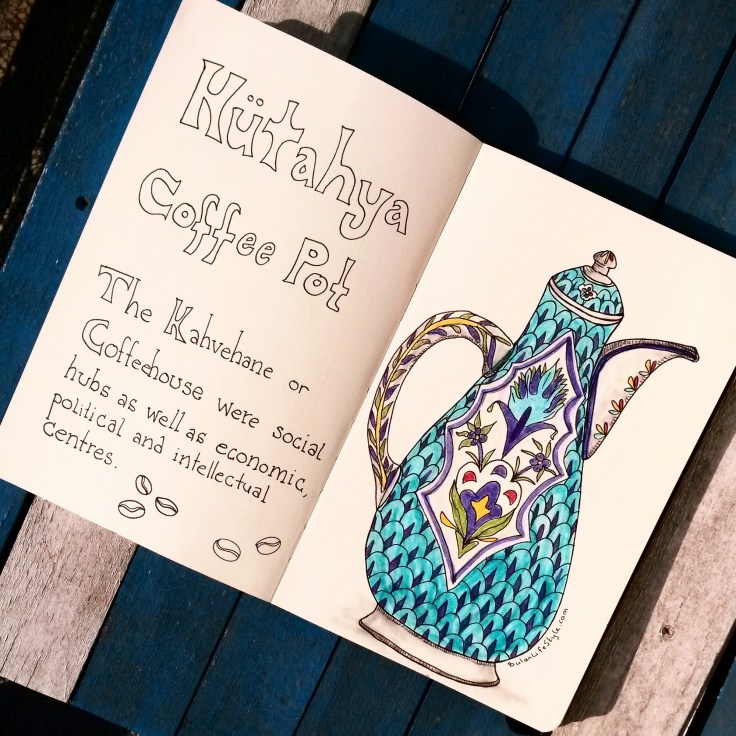 Kütahya
Coffee Pot
The Kahvehane or
Coffeehouse were social
hubs as well as economic,
political and intellectual
centres.
BulanLifestyle.com